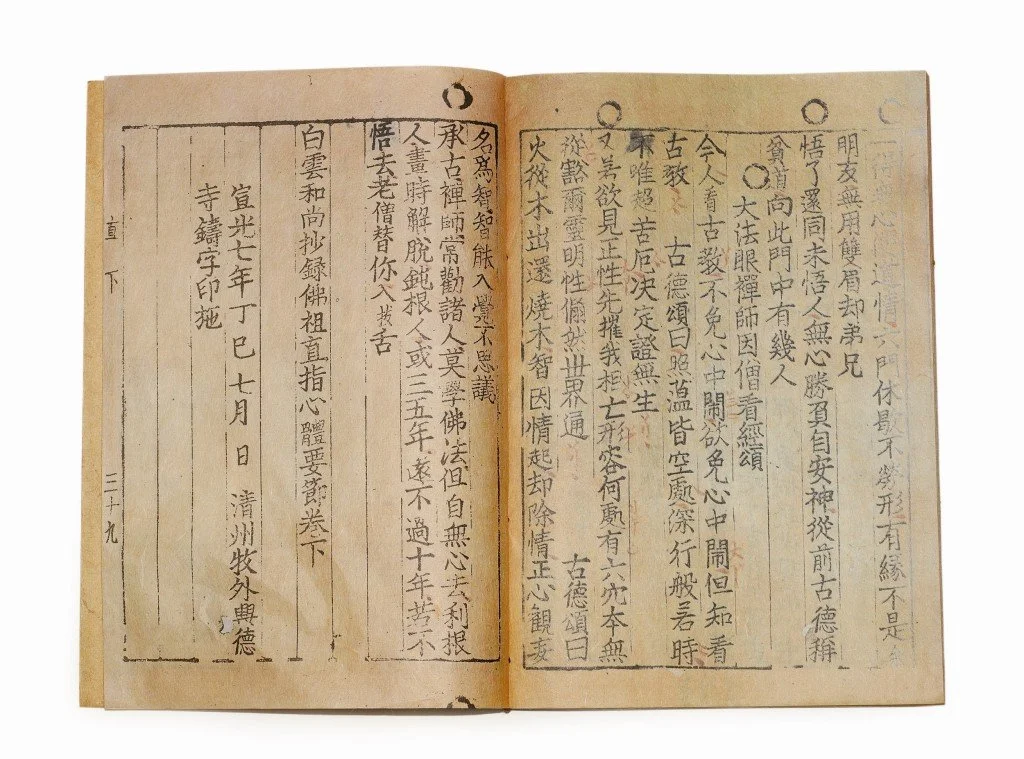 一得無心便道情六門休歇不勞形有緣不是
明友無用雙眉却弟兄
悟了還同未悟人無心勝負自安神從前古德稱
貧道向此門中有幾人
大法眼禪師因僧看經頌
今人看古教不免心中鬧欲免心中鬧但知看
古教 古德頌曰照蕰皆空處深行般若時
不唯超苦厄决定證無生
又若欲見正性先摧我相亡形容何處有六宂本無
從豁爾靈明性翛然世界通 古德頌曰
火從木出還燒木智因情起却除情正心觀妄
名爲智智能入覺不思議
承古禪師常勸諸人莫學佛法但自無心去利根
人畫時解脫鈍根人或三五年遠不過十年若不
悟去老僧替你入拔舌
白雲和尚抄錄佛祖直指心體要節卷下
宣光七年丁巳七月 日 清州牧外興德
寺鑄字印施
直下 三十九